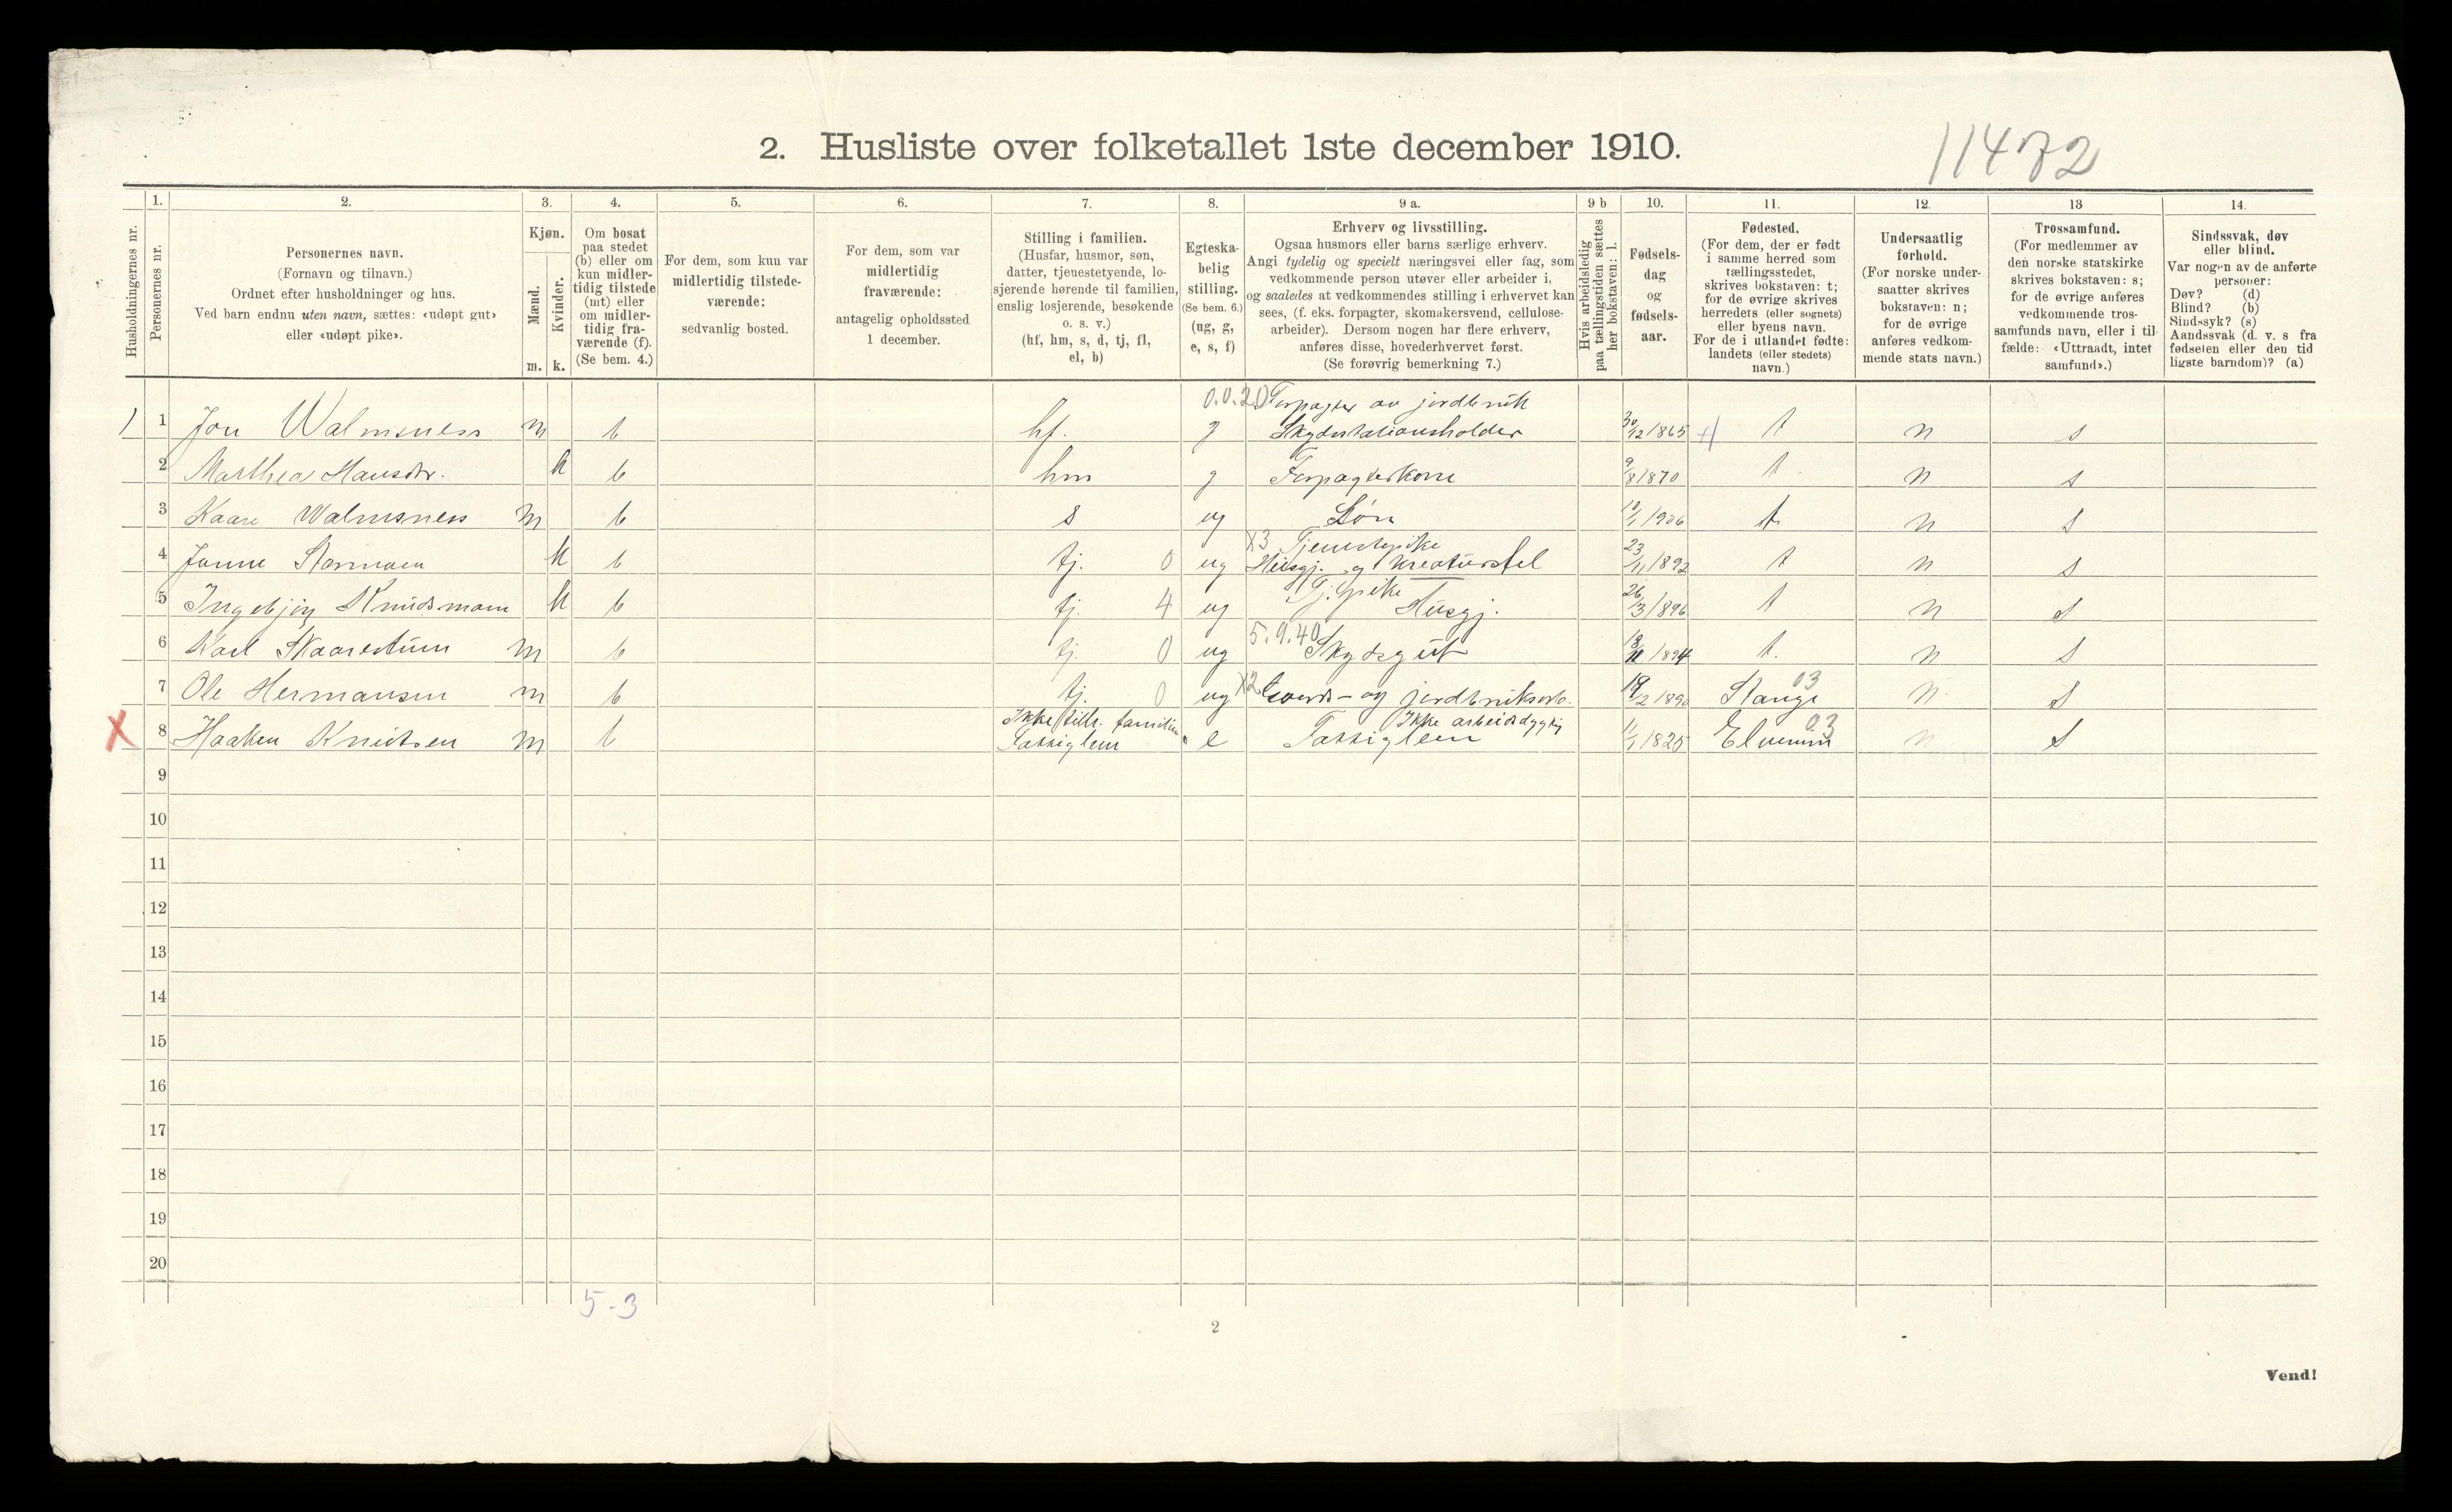 2. Husliste over folketallet 1ste december 1910.
11472
Husholdningernes nr.
1.
Personernes nr.
2.
Personernes navn.
(Fornavn og tilnavn.)
Ordnet efter husholdninger og hus.
Ved barn endnu uten navn, sættes: «udøpt gut»
eller «udøpt pike».
3.
Kjøn.
Mænd.
m.
Kvinder.
k.
4.
Om bosat
paa stedet
(b) eller om
kun midler-
tidig tilstede
(mt) eller
om midler-
tidig fra-
værende (f).
(Se bem. 4.)
5.
For dem, som kun var
midlertidig tilstede-
værende:
sedvanlig bosted.
6.
For dem, som var
midlertidig
fraværende:
antagelig opholdssted
1 december.
7.
Stilling i familien.
(Husfar, husmor, søn,
datter, tjenestetyende, lo-
sjerende hørende til familien,
enslig losjerende, besøkende
o. s. v.)
(hf, hm, s, d, tj, fl,
el, b)
8.
Egteska-
belig
stilling.
(Se bem. 6.)
(ug, g,
e, s, f)
9 a.
Erhverv og livsstilling.
Ogsaa husmors eller barns særlige erhverv.
Angi tydelig og specielt næringsvei eller fag, som
vedkommende person utøver eller arbeider i,
og saaledes at vedkommendes stilling i erhvervet kan
sees, (f. eks. forpagter, skomakersvend, cellulose-
arbeider). Dersom nogen har flere erhverv,
anføres disse, hovederhvervet først.
(Se forøvrig bemerkning 7.)
9 b
Hvis arbeidsledig
paa tællingstiden sættes
her bokstaven: l.
10.
Fødsels-
dag
og
fødsels-
aar.
11.
Fødested.
(For dem, der er født
i samme herred som
tællingsstedet,
skrives bokstaven: t;
for de øvrige skrives
herredets (eller sognets)
eller byens navn.
For de i utlandet fødte:
landets (eller stedets)
navn.)
12.
Undersaatlig
forhold.
(For norske under-
saatter skrives
bokstaven: n;
for de øvrige
anføres vedkom-
mende stats navn.)
13
Trossamfund.
(For medlemmer av
den norske statskirke
skrives bokstaven: s;
for de øvrige anføres
vedkommende tros-
samfunds navn, eller i til-
fælde: «Uttraadt, intet
samfund».)
14.
Sindssvak, døv
eller blind.
Var nogen av de anførte
personer:
Døv? (d)
Blind? (b)
Sindssyk? (s)
Aandssvak (d. v. s fra
fødselen eller den tid
ligste barndom)? (a)
0.0.20 Forpagter av jordbruk
1) 1 Jon Walmsness m b hf. g Skydsstationsholder 30/12 1865 t n s
2 Marthea Hansdtr. k b hm g Forpagterkone 9/8 1870 t n s
3 Kaare Walmsness m b s ug Søn 10/1 1906 t n s
X3 Tjenestepike
4 Janne Stormoen k b tj. 0 ug Husgj. og kreaturstel 23/11 1892 t n s
Tj. pike
5 Ingebjør Knudsmoen k b tj. 4 ug Husgj. 26/3 1896 t n s
5.9.40
6 Karl Skaarestuen m b tj. 0 ug Skydsgut 1894 t. n s
03
7 Ole Hermansen m b tj. 0 ug X2 Gaards- og jordbruksarb. 19/2 1890 Stange n s
Ikke tilh. familien Ikke arbeidsdygtig 03
X 8 Haaken Knutsen m b Fattiglem e Fattiglem 11/1 1825 Elverum n s
9
10
11
12
13
14
15
16
17
18
19
20
5-3
2
Vend!